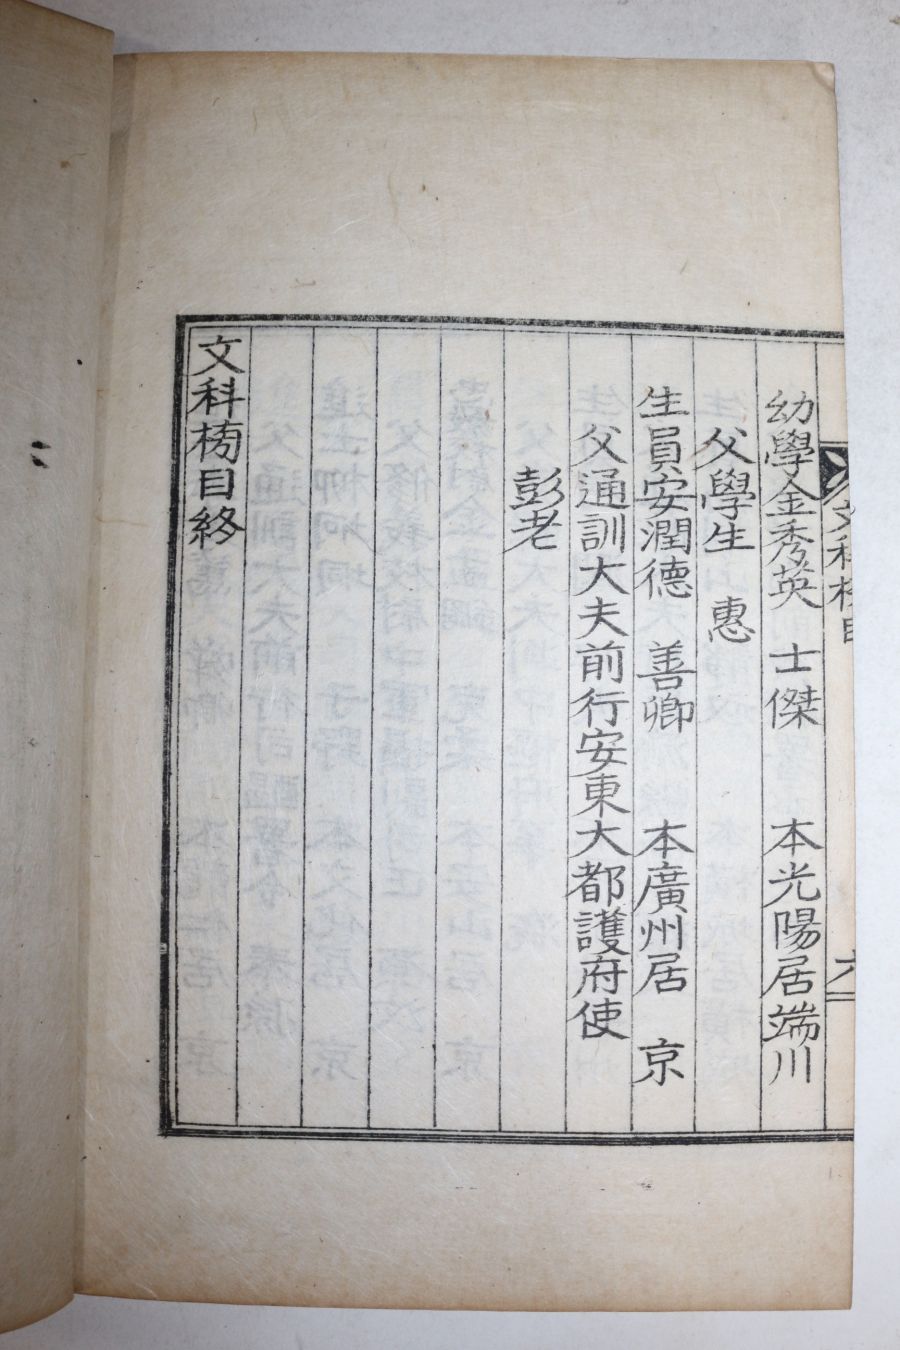 文科榜目
六
幼學金秀英 士傑 本光陽居端川
父學生 惠
生員安潤德 善卿 本廣州居 京
父通訓大夫前行安東大都護府使
彭老
文科榜目終